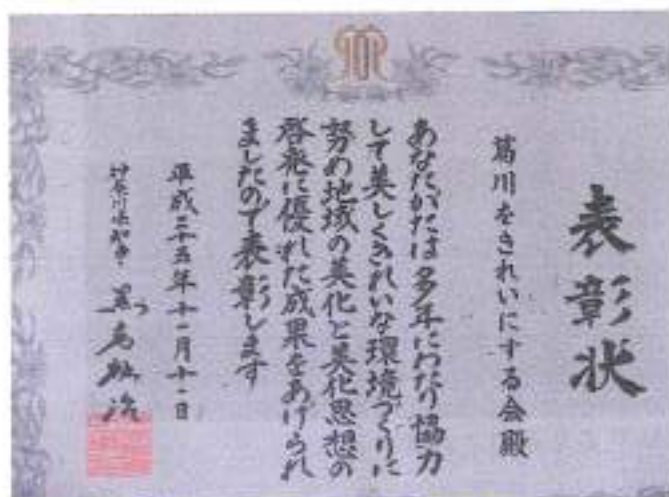 表彰状
葛川をきれいにする会殿
あなたがたは多年にわたり協力
して美しくきれいな環境づくりに
努め地域の美化と美化思想の
啓発に優れた成果をあげられ
ましたので表彰します
平成二十五年十一月十一日
神奈川県知事 黒岩祐治